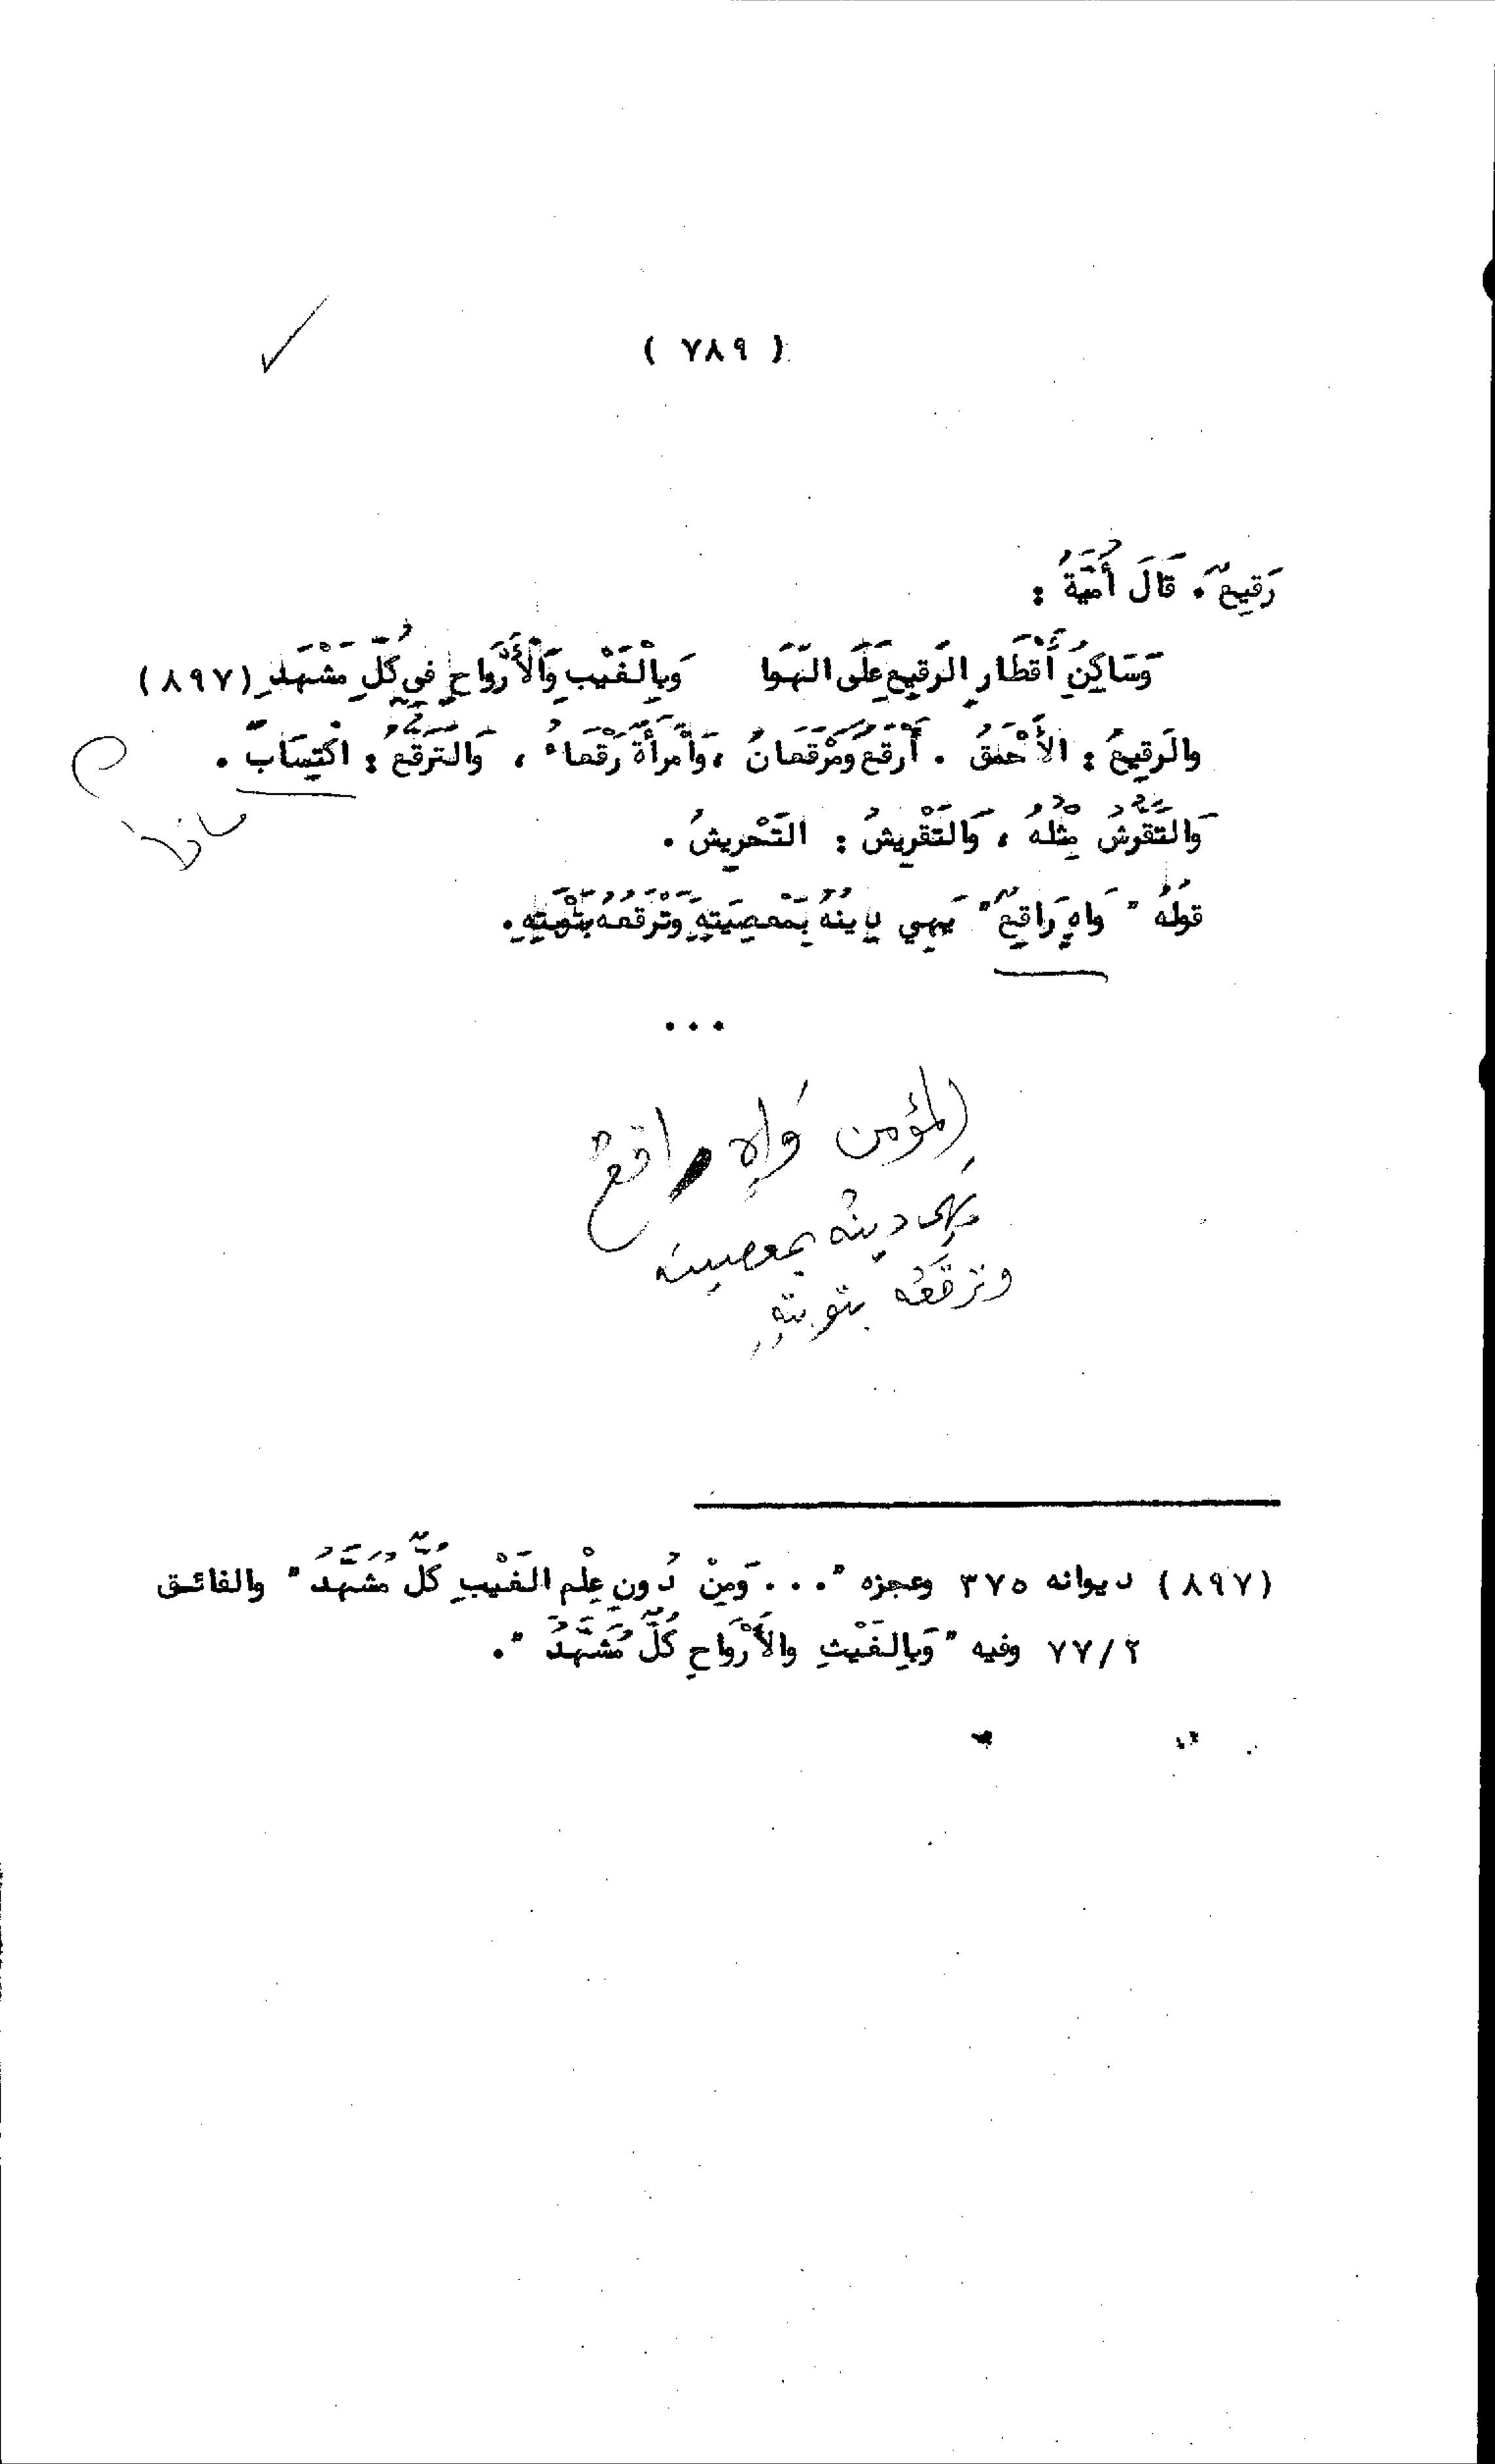 ( ٧٨٩ )
رَقِيعٌ . قَالَ أُمَيَّةُ :
وَسَاكِنُ أَقْطَارِ الرَقِيعِ عَلَى الهَوَا وَبِالْغَيْبِ وَالْأَرْوَاحِ فِي كُلِّ مَشْهَدِ (٨٩٧)
والرَقِيعُ : الأَحْمَقُ . أَرْقَعُ وَمَرْقَعَانُ ، وَامْرَأَةٌ رَقْعَاءُ ، وَالتَرَقُّعُ : اكْتِسَابٌ .
وَالتَّقَرُّشُ مِثْلُهُ ، وَالتَقْرِيشُ : التَحْرِيشُ .
قَولُهُ " وَاهٍ رَاقِعٌ " يَهِي دِينُهُ بِمَعْصِيَتِهِ وَتَرْقَعُهُ بِتَوْبَتِهِ .
...
المؤمن وَاهٍ راقعٌ
يَهِى دينُه بمعصيته
وترقَعُه بتوبتِهِ
(٨٩٧) ديوانه ٣٧٥ وعجزه " ... وَمِنْ دُونِ عِلْمِ الغَيْبِ كُلٌّ مُسَهَّدُ " والفائق
٢/٧٧ وفيه " وَبِالغَيْثِ والأَرْوَاحِ كُلٌّ مُشَهَّدُ " .